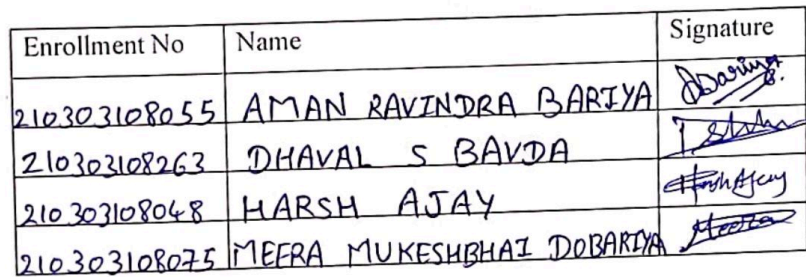 Enrollment No Name Signature
210303108055 AMAN RAVINDRA BARIYA
210303108263 DHAVAL S BAVDA
210303108048 HARSH AJAY HarshAjay
210303108075 MEERA MUKESHBHAI DOBARIYA Meera